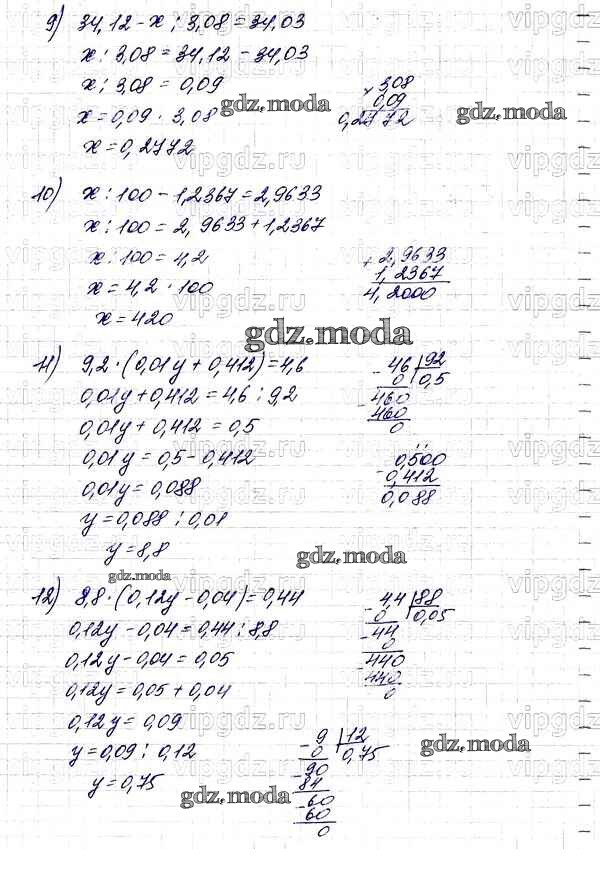 9) 34,12 - x : 3,08 = 34,03
x : 3,08 = 34,12 - 34,03
x : 3,08 = 0,09
x = 0,09 · 3,08
x = 0,2772
× 3,08
0,09
0,2772
gdz.moda
gdz.moda
10) x : 100 - 1,2367 = 2,9633
x : 100 = 2,9633 + 1,2367
x : 100 = 4,2
x = 4,2 · 100
x = 420
+ 2,9633
1,2367
4,2000
gdz.moda
11) 9,2 · (0,01y + 0,412) = 4,6
0,01y + 0,412 = 4,6 : 9,2
0,01y + 0,412 = 0,5
0,01y = 0,5 - 0,412
0,01y = 0,088
y = 0,088 : 0,01
y = 8,8
- 46 | 92
0 | 0,5
- 460
460
0
- 0,500
0,412
0,088
gdz.moda
gdz.moda
12) 8,8 · (0,12y - 0,04) = 0,44
0,12y - 0,04 = 0,44 : 8,8
0,12y - 0,04 = 0,05
0,12y = 0,05 + 0,04
0,12y = 0,09
y = 0,09 : 0,12
y = 0,75
- 4,4 | 88
0 | 0,05
- 44
0
- 440
440
0
- 9 | 12
0 | 0,75
- 90
84
- 60
60
0
gdz.moda
gdz.moda
vipgdz.ru